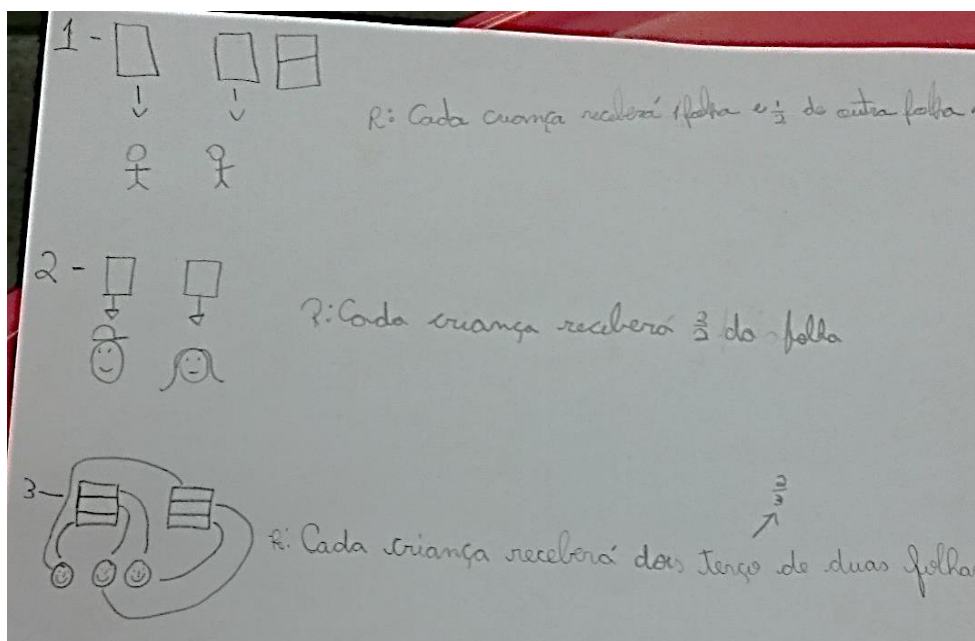 1 -
R: Cada criança receberá 1 folha e 1/2 de outra folha.
2 -
R: Cada criança receberá 2/2 da folha
3 -
2/3
R: Cada criança receberá dois terço de duas folha